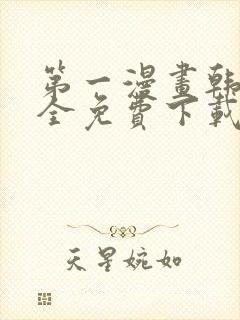 第一漫畫韓
全免費下載
天星婉如